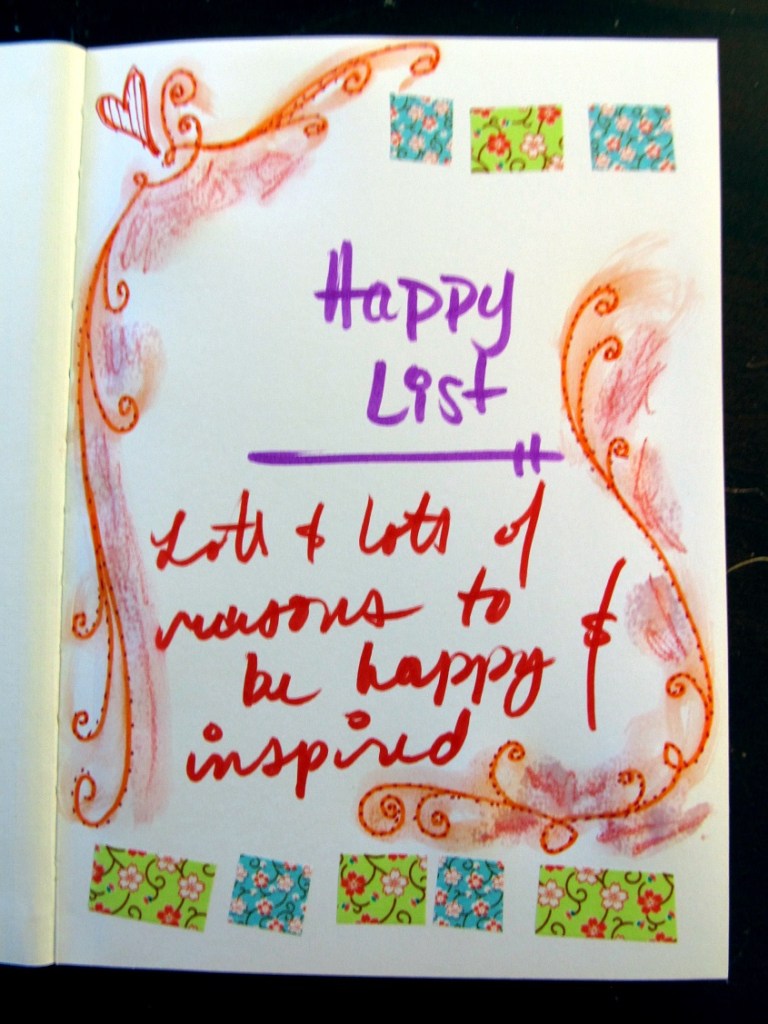 Happy
List
Lots & lots of
reasons to
be happy &
inspired